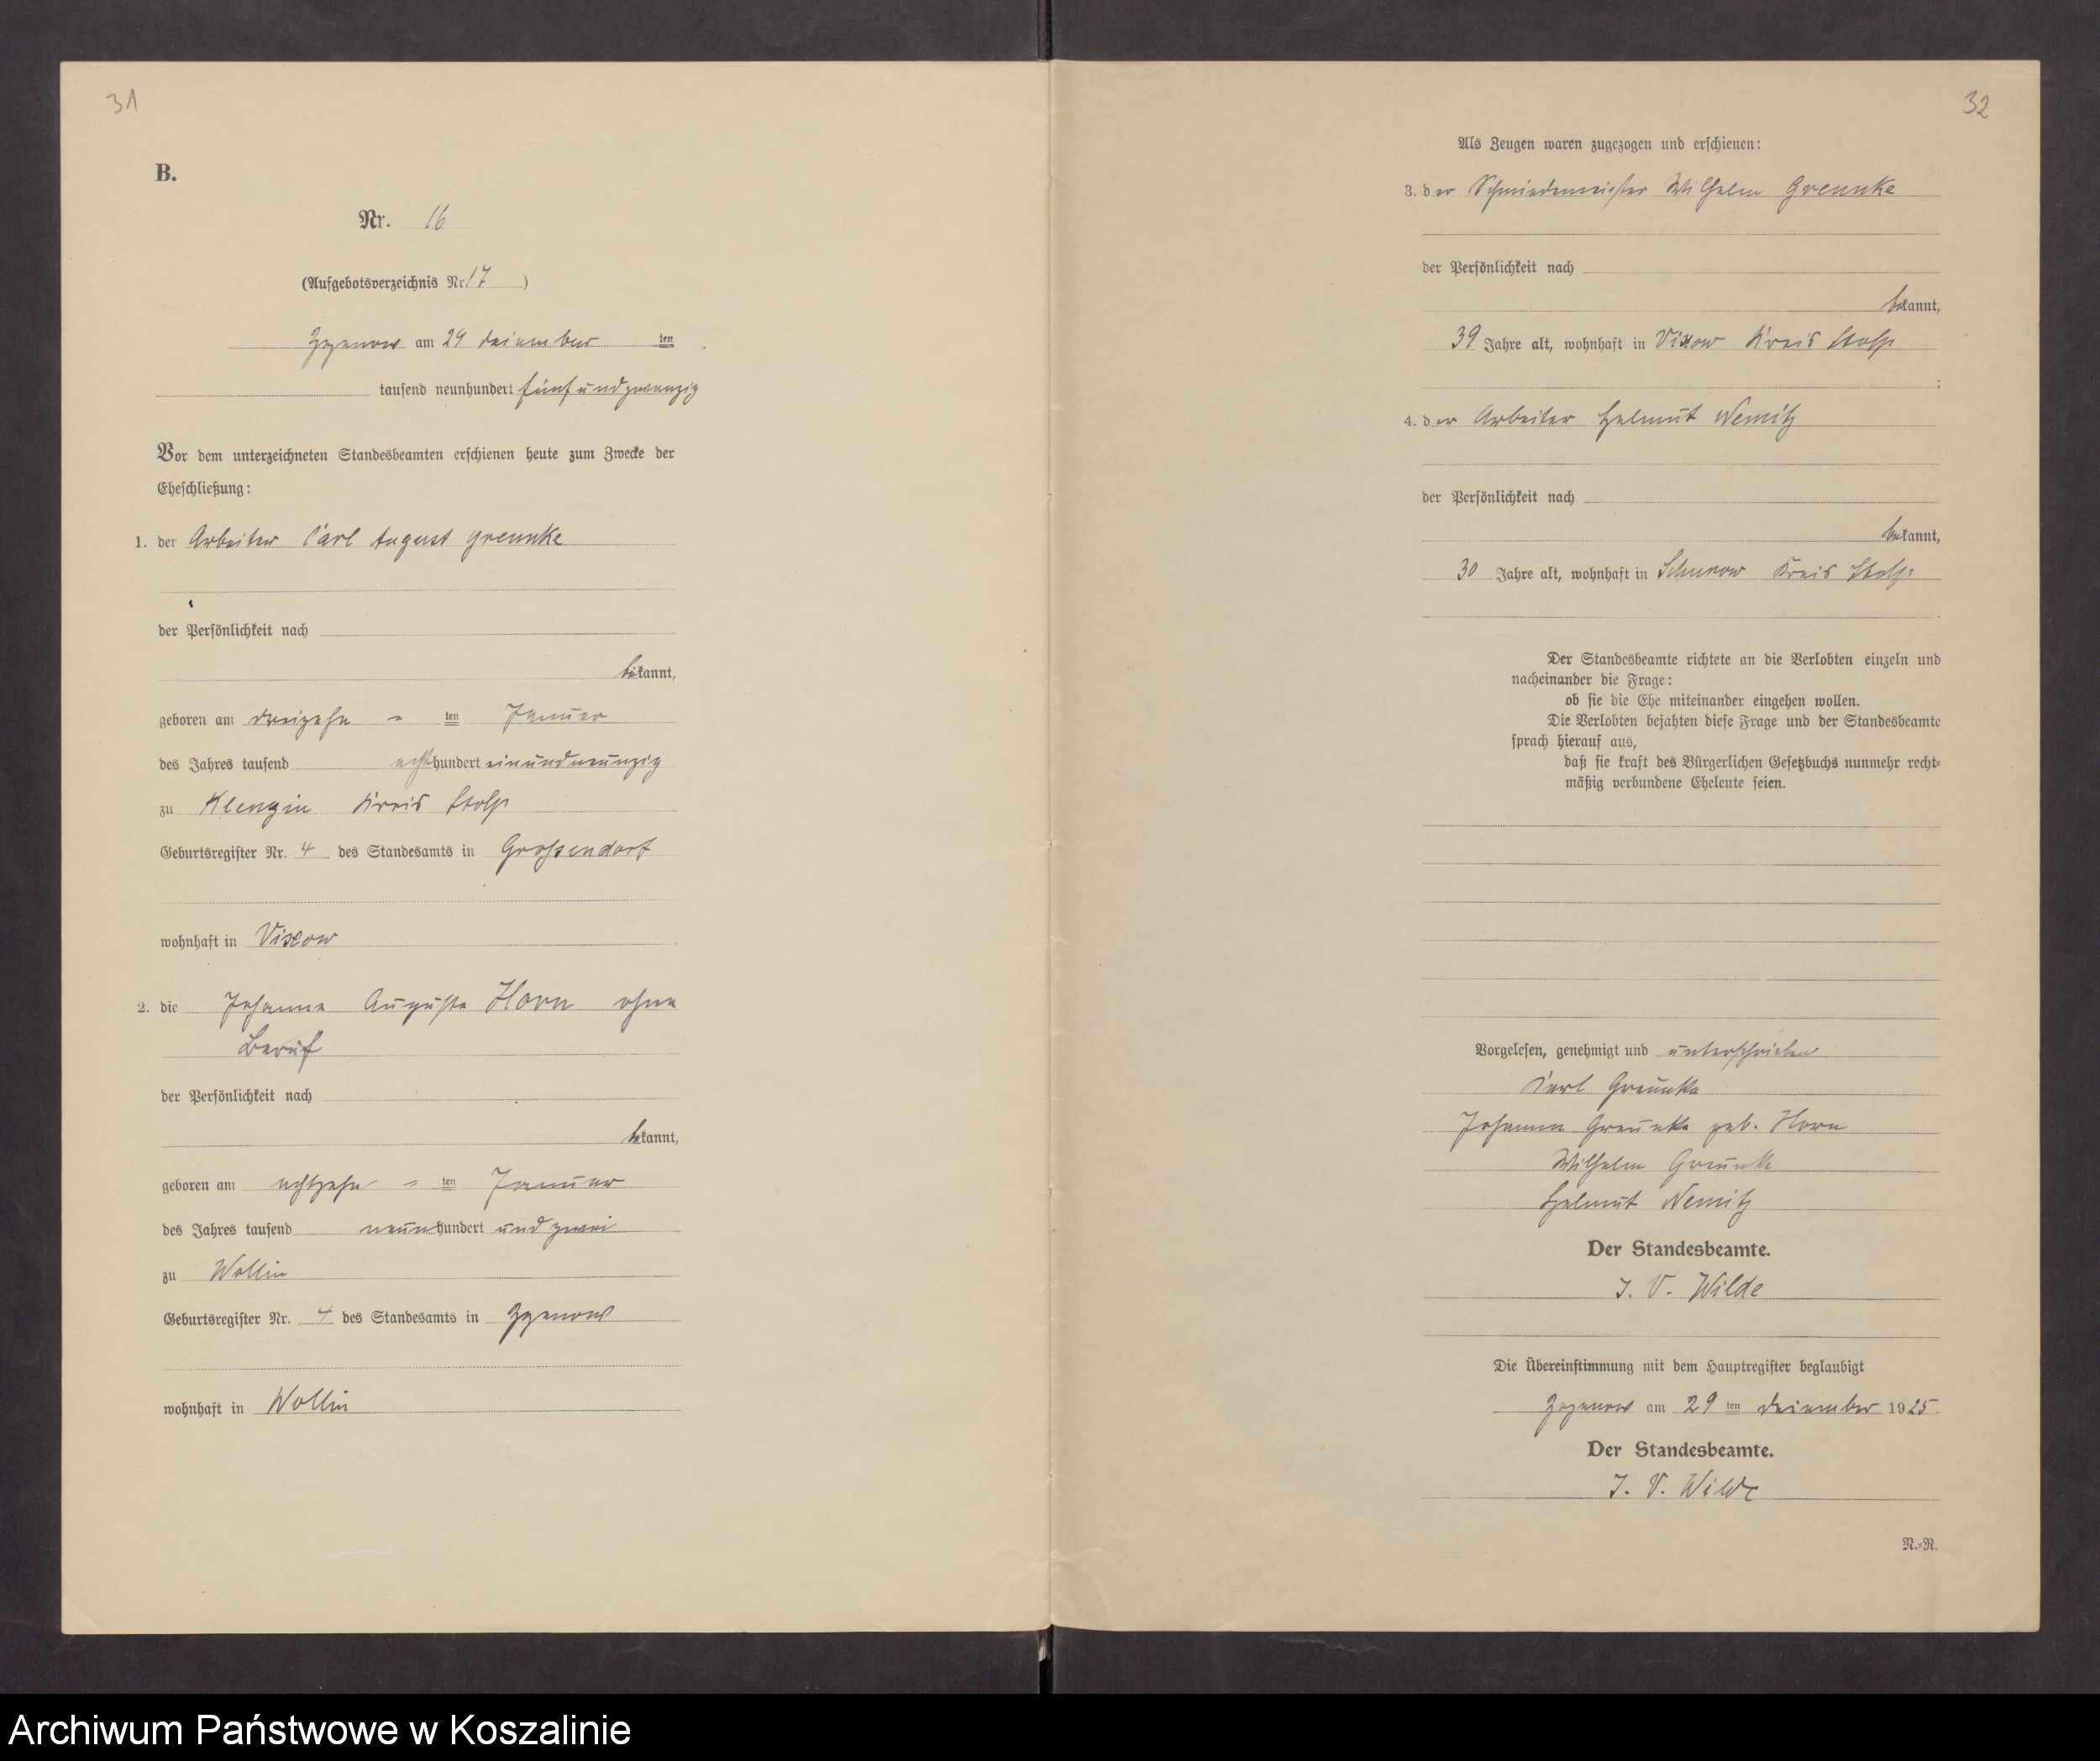 31
B.
Nr. 16
(Aufgebotsverzeichnis Nr. 17)
Zezenow am 29 Dezember ten
tausend neunhundert fünfundzwanzig
Vor dem unterzeichneten Standesbeamten erschienen heute zum Zwecke der
Eheschließung:
1. der Arbeiter Carl August Greunke
der Persönlichkeit nach
bekannt,
geboren am dreizehn = ten Januar
des Jahres tausend achthundert einundneunzig
zu Klenzin Kreis Stolp
Geburtsregister Nr. 4 des Standesamts in Großendorf
wohnhaft in Vixow
2. die Johanna Auguste Horn ohne
Beruf
der Persönlichkeit nach
bekannt,
geboren am achtzehn = ten Januar
des Jahres tausend neunhundert und zwei
zu Wollin
Geburtsregister Nr. 4 des Standesamts in Zezenow
wohnhaft in Wollin
32
Als Zeugen waren zugezogen und erschienen:
3. der Schmiedemeister Wilhelm Greunke
der Persönlichkeit nach
bekannt,
39 Jahre alt, wohnhaft in Vixow Kreis Stolp
;
4. der Arbeiter Helmut Nemitz
der Persönlichkeit nach
bekannt,
30 Jahre alt, wohnhaft in Schurow Kreis Stolp
.
Der Standesbeamte richtete an die Verlobten einzeln und
nacheinander die Frage:
ob sie die Ehe miteinander eingehen wollen.
Die Verlobten bejahten diese Frage und der Standesbeamte
sprach hierauf aus,
daß sie kraft des Bürgerlichen Gesetzbuchs nunmehr recht-
mäßig verbundene Eheleute seien.
Vorgelesen, genehmigt und unterschrieben
Karl Greunke
Johanna Greunke geb. Horn
Wilhelm Greunke
Helmut Nemitz
Der Standesbeamte.
J. V. Wilde
Die Übereinstimmung mit dem Hauptregister beglaubigt
Zezenow am 29 ten Dezember 1925.
Der Standesbeamte.
J. V. Wilde
N.-R.
Archiwum Państwowe w Koszalinie